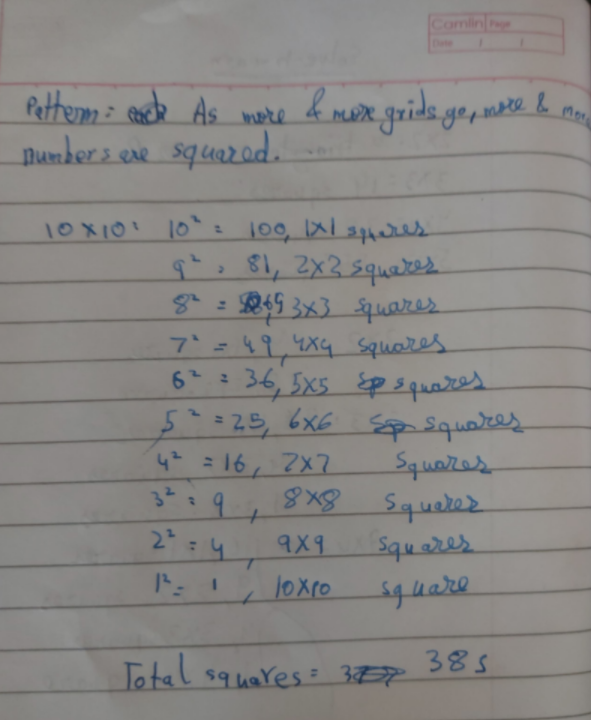 Camlin Page
Date / /
Pattern: As more & more grids go, more & mor
numbers are squared.
10×10: 10² = 100, 1×1 squares
9² = 81, 2×2 squares
8² = 64, 3×3 squares
7² = 49, 4×4 squares
6² = 36, 5×5 squares
5² = 25, 6×6 squares
4² = 16, 7×7 squares
3² = 9, 8×8 squares
2² = 4, 9×9 squares
1² = 1, 10×10 square
Total squares = 385